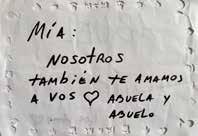 Mía:
NOSOTROS
también te amamos
A VOS ♡ ABUELA Y
ABUELO